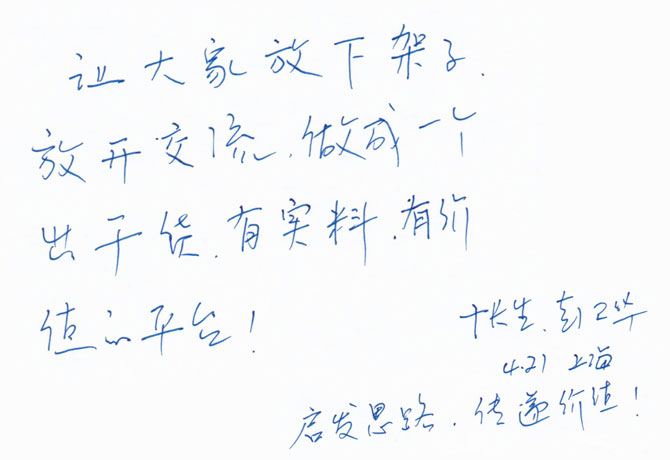 让大家放下架子、
放开交流、做成一个
出干货、有实料、有价
值的平台!
叶长生、彭卫华
4.21 上海
启发思路、传递价值!